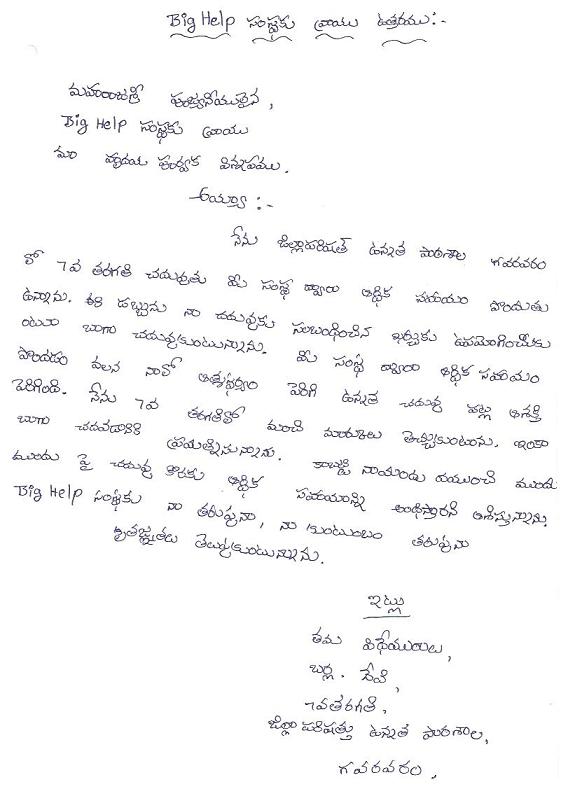 Big Help సంస్థకు వ్రాయు ఉత్తరము:-
మహారాజశ్రీ పూజ్యనీయులైన,
Big Help సంస్థకు వ్రాయు
మా హృదయ పూర్వక విన్నపము.
అయ్యా :-
నేను జిల్లాపరిషత్ ఉన్నత పాఠశాల గవరవరం
లో 7వ తరగతి చదువుతు మీ సంస్థ ద్వారా ఆర్థిక సహాయం పొందుతు
ఉన్నాను. ఈ డబ్బును నా చదువుకు సంబంధించిన ఖర్చుకు ఉపయోగించుకు
ంటూ బాగా చదువుకుంటున్నాను. మీ సంస్థ ద్వారా ఆర్థిక సహాయం
పొందడం వలన నాలో ఆత్మస్థైర్యం పెరిగి ఉన్నత చదువు పట్ల ఆసక్తి
పెరిగింది. నేను 7వ తరగతిలో మంచి మార్కులు తెచ్చుకుంటాను. ఇంకా
బాగా చదవడానికి ప్రయత్నిస్తున్నాను. కాబట్టి నాయందు దయుంచి ముందు
ముందు పై చదువు కొరకు ఆర్థిక సహాయాన్ని అందిస్తారని ఆశిస్తున్నాను.
Big Help సంస్థకు నా తరుపునా, నా కుంటుంబం తరుపునా
కృతజ్ఞతలు తెల్పుకుంటున్నాను.
ఇట్లు
తమ విధేయురాలు,
బర్ల. దేవి,
7వతరగతి,
జిల్లా పరిషత్తు ఉన్నత పాఠశాల,
గవరవరం,